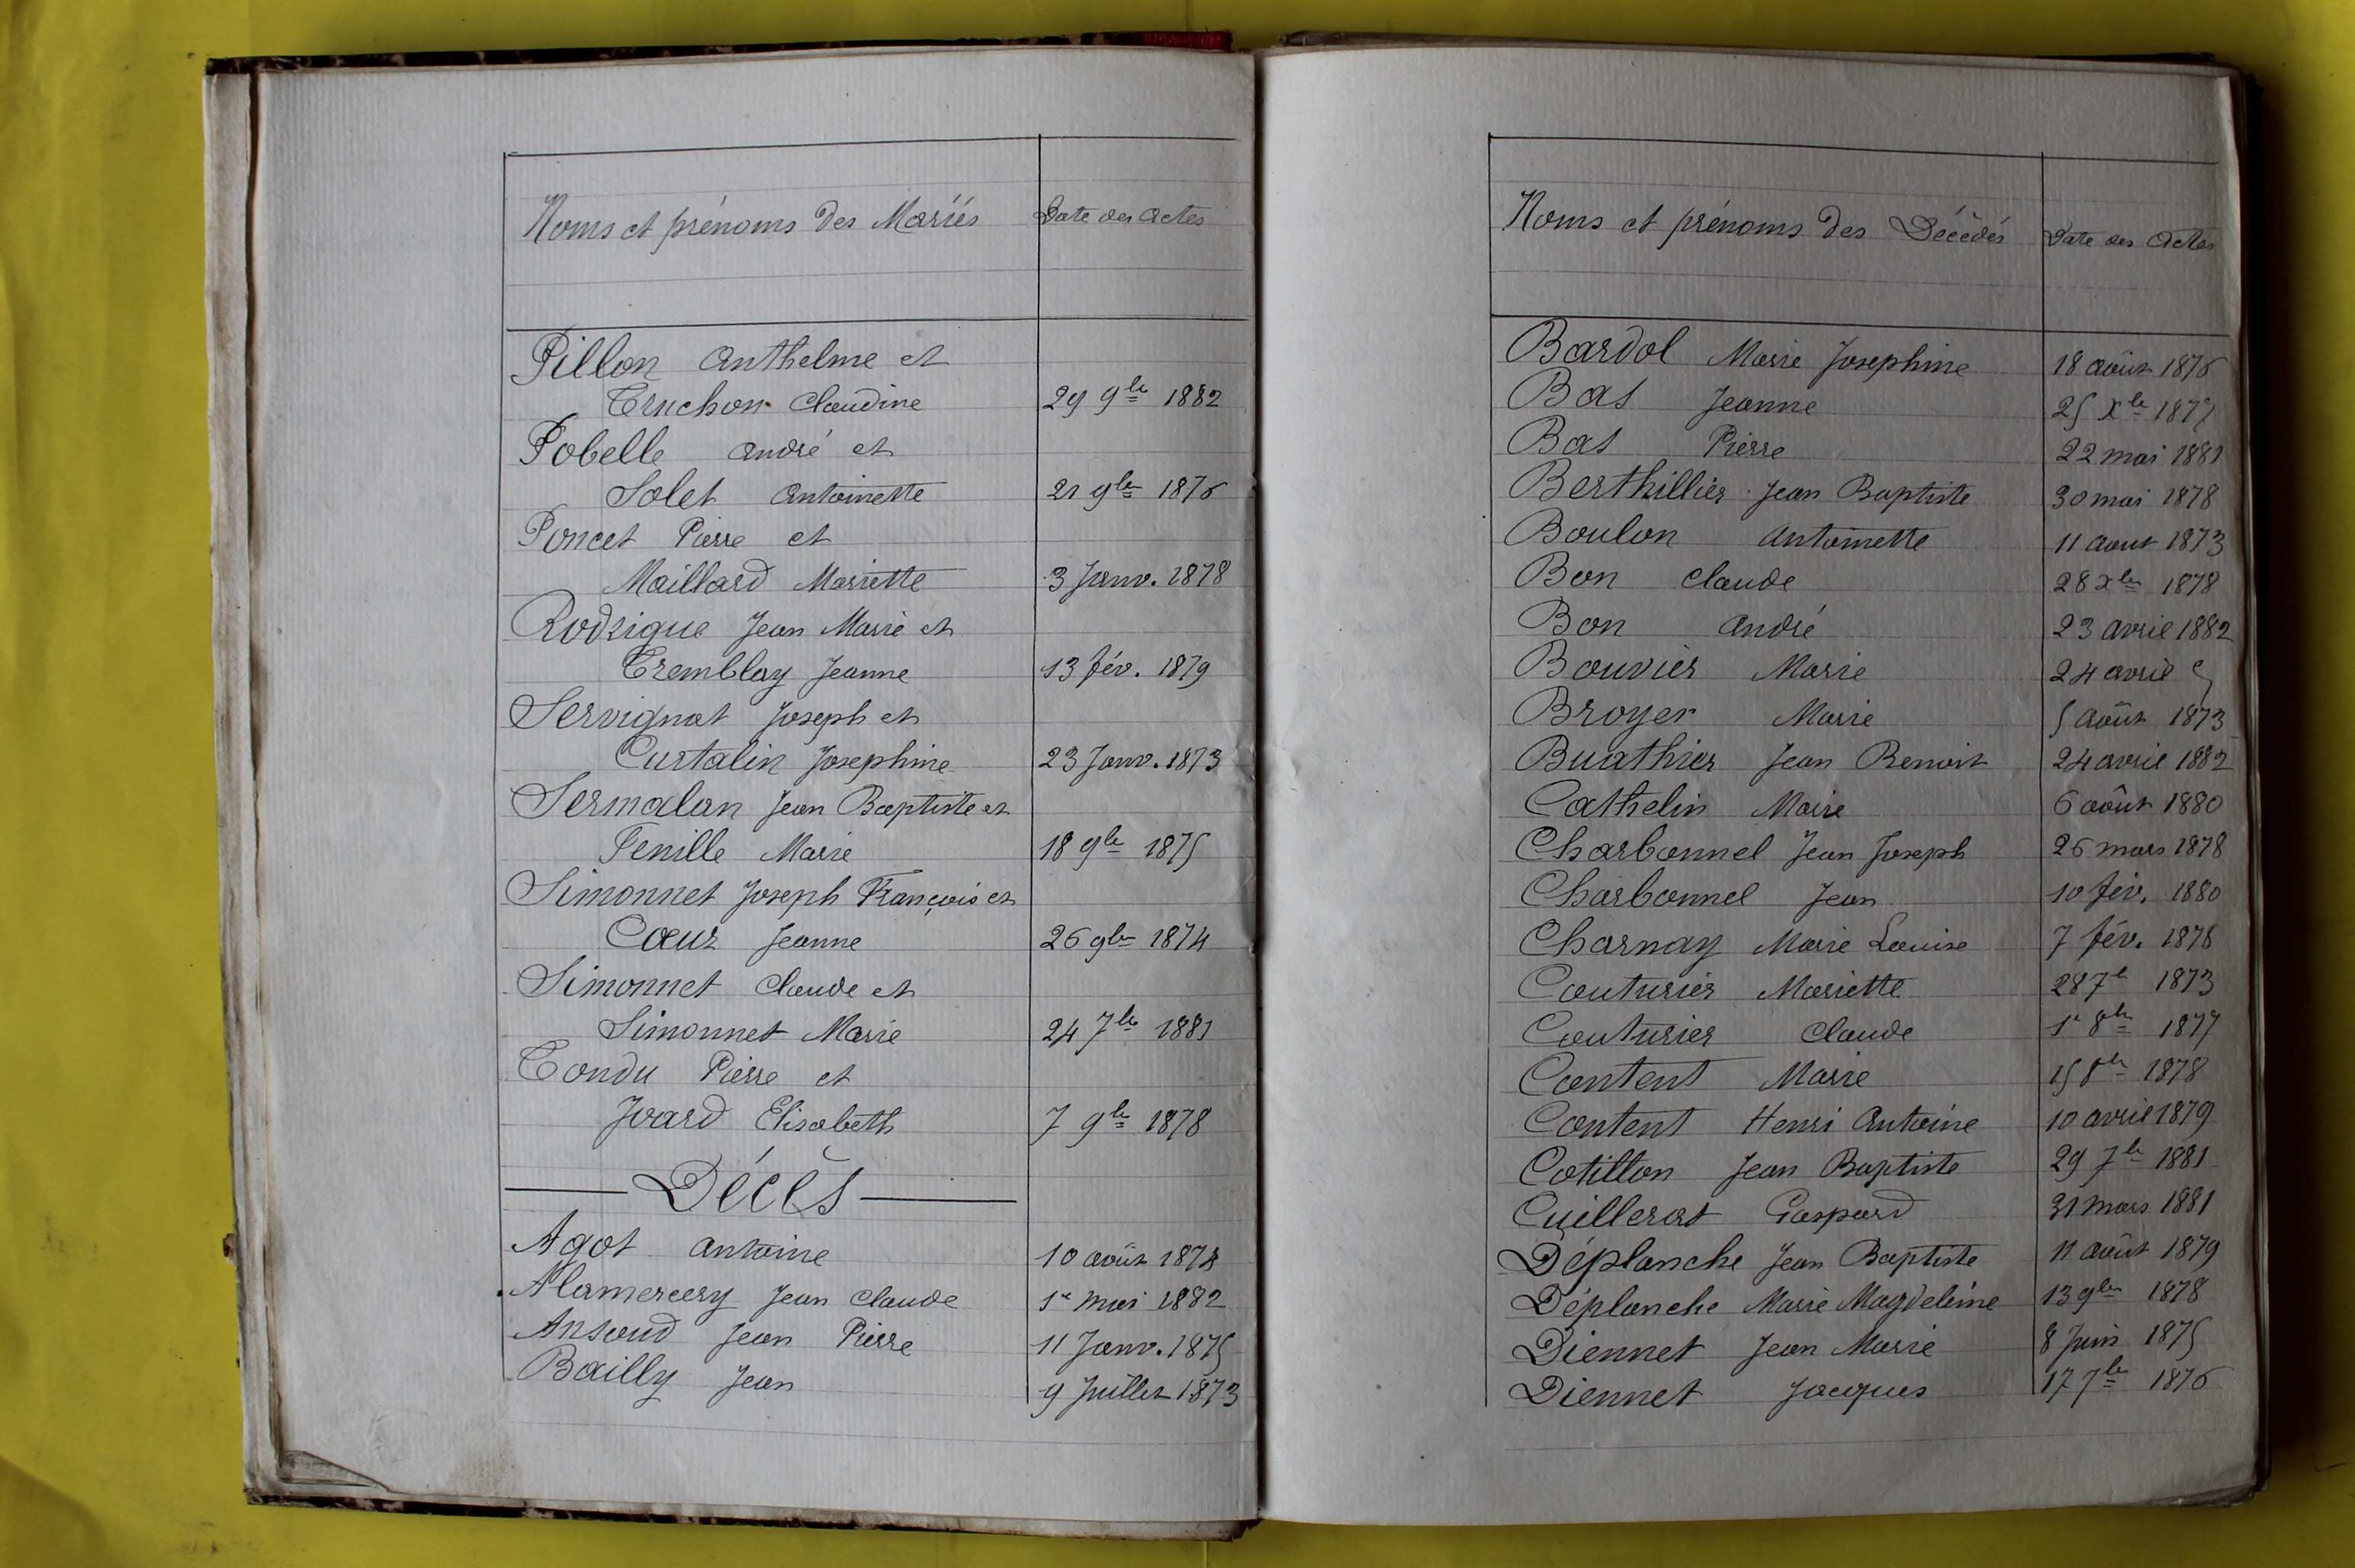 Noms et prénoms des Mariés Date des Actes
Pillon Anthelme et
Truchon Claudine 29 9bre 1882
Pobelle André et
Solet Antoinette 21 9bre 1876
Poncet Pierre et
Maillard Mariette 3 Janv. 1878
Rodrigue Jean Marie et
Tremblay Jeanne 13 fév. 1879
Servignat Joseph et
Curtalin Josephine 23 Janv. 1873
Sermalan Jean Baptiste et
Fenille Marie 18 9bre 1875
Simonnet Joseph François et
Cœur Jeanne 26 9bre 1874
Simonnet Claude et
Simonnet Marie 24 7bre 1881
Tondu Pierre et
Joard Elisabeth 7 9bre 1878
Décès
Agot Antoine 10 août 1878
Alamercery Jean Claude 1er mai 1882
Ansoud Jean Pierre 11 Janv. 1875
Bailly Jean 9 Juillet 1873
Noms et prénoms des Décédés Date des Actes
Bardol Marie Josephine 18 août 1876
Bas Jeanne 25 Xbre 1877
Bas Pierre 22 mai 1881
Berthillier Jean Baptiste 30 mai 1878
Boulon Antoinette 11 aout 1873
Bon Claude 28 Xbre 1878
Bon André 23 avril 1882
Bouvier Marie 24 avril
Broyer Marie 5 août 1873
Buathier Jean Benoit 24 avril 1882
Cathelin Marie 6 août 1880
Charbonnel Jean Joseph 26 mars 1878
Charbonnel Jean 10 fév. 1880
Charnay Marie Louise 7 fév. 1878
Couturier Mariette 28 7b 1873
Couturier Claude 1er 8bre 1877
Content Marie 15 8bre 1878
Content Henri Antoine 10 avril 1879
Cotillon Jean Baptiste 29 7bre 1881
Cuillerat Gaspard 31 mars 1881
Déplanche Jean Baptiste 11 août 1879
Déplanche Marie Magdeleine 13 9bre 1878
Diennet Jean Marie 8 Juin 1875
Diennet Jacques 17 7bre 1876